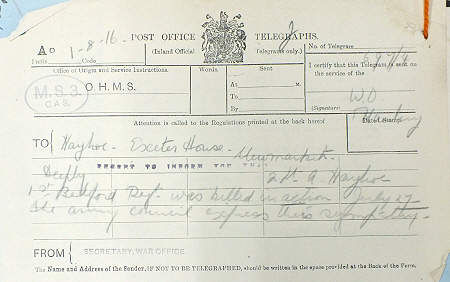 1-8-16
POST OFFICE TELEGRAPHS.
A (Inland Official Telegrams only.)
Prefix Code
No. of Telegram
Office of Origin and Service Instructions.
Words.
Sent
At M.
To
By
I certify that this Telegram is sent on
the service of the
W.O
(Signature)
M.S.3.
CAS.
O.H.M.S.
Attention is called to the Regulations printed at the back hereof
Dated Stamp.
TO Hayhoe - Exeter House - Newmarket.
Deeply REGRET TO INFORM YOU THAT 2 Lt. A. Hayhoe
1st Bedford Regt. was killed in action July 27
The army council express their sympathy.
FROM SECRETARY, WAR OFFICE.
The Name and Address of the Sender, IF NOT TO BE TELEGRAPHED, should be written in the space provided at the Back of the Form.